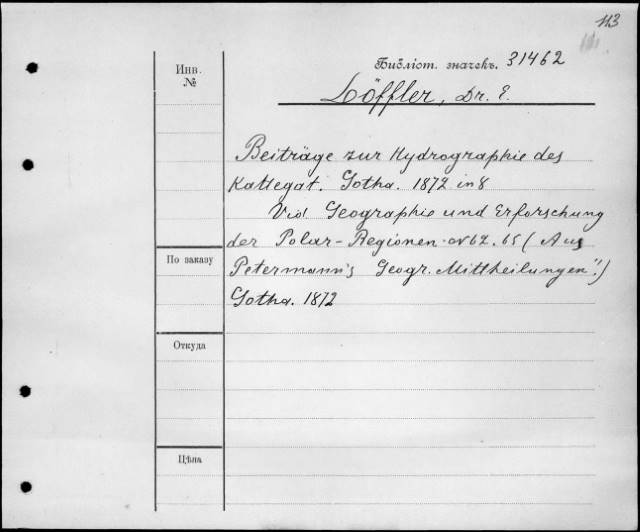 113
Инв.
№
Библіот. значекъ. 31462
Löffler, Dr. E.
Beiträge zur Hydrographie des
Kattegat. Gotha. 1872 in 8
Vid. Geographie und Erforschung
der Polar-Regionen. № 62. 65 (Aus
По заказу
Petermann's Geogr. Mittheilungen".)
Gotha. 1872
Откуда
Цѣна